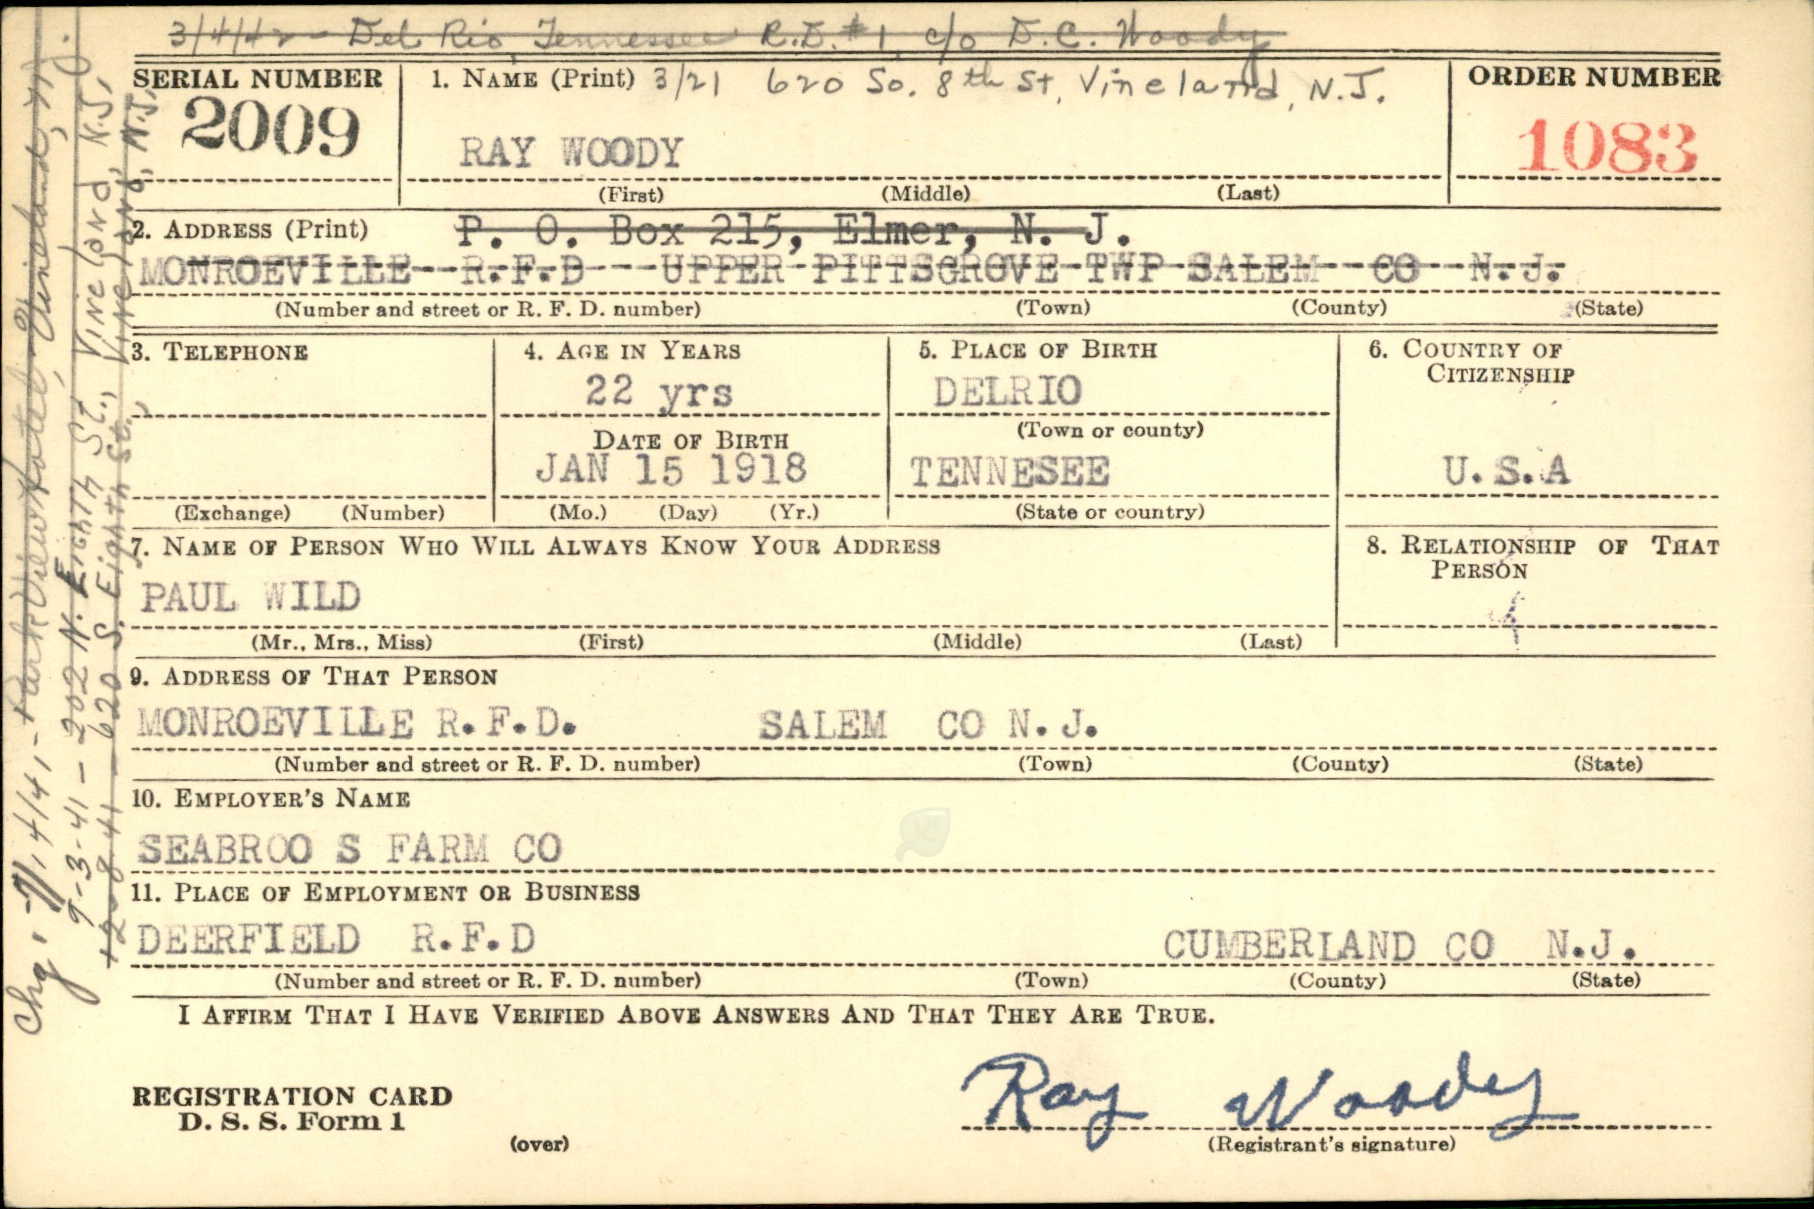 3/4/42 - Del Rio, Tennessee R.D. #1, c/o D.C. Woody
SERIAL NUMBER
2009
1. NAME (Print) 3/21 620 So. 8th St, Vineland, N.J.
RAY WOODY
(First) (Middle) (Last)
ORDER NUMBER
1083
2. ADDRESS (Print) P. O. Box 215, Elmer, N. J.
MONROEVILLE R.F.D UPPER PITTSGROVE TWP SALEM CO N.J.
(Number and street or R. F. D. number) (Town) (County) (State)
3. TELEPHONE
(Exchange) (Number)
4. AGE IN YEARS
22 yrs
DATE OF BIRTH
JAN 15 1918
(Mo.) (Day) (Yr.)
5. PLACE OF BIRTH
DELRIO
(Town or county)
TENNESEE
(State or country)
6. COUNTRY OF
CITIZENSHIP
U.S.A
7. NAME OF PERSON WHO WILL ALWAYS KNOW YOUR ADDRESS
PAUL WILD
(Mr., Mrs., Miss) (First) (Middle) (Last)
8. RELATIONSHIP OF THAT
PERSON
9. ADDRESS OF THAT PERSON
MONROEVILLE R.F.D. SALEM CO N.J.
(Number and street or R. F. D. number) (Town) (County) (State)
10. EMPLOYER'S NAME
SEABROO S FARM CO
11. PLACE OF EMPLOYMENT OR BUSINESS
DEERFIELD R.F.D CUMBERLAND CO N.J.
(Number and street or R. F. D. number) (Town) (County) (State)
I AFFIRM THAT I HAVE VERIFIED ABOVE ANSWERS AND THAT THEY ARE TRUE.
REGISTRATION CARD
D. S. S. Form 1
(over)
Ray Woody
(Registrant's signature)
Chg. - 7/14/41 - Park View Hotel, Vineland, N.J.
9-3-41 - 202 N. Eighth St., Vineland, N.J.
12-8-41 - 620 S. Eighth St., Vineland, N.J.